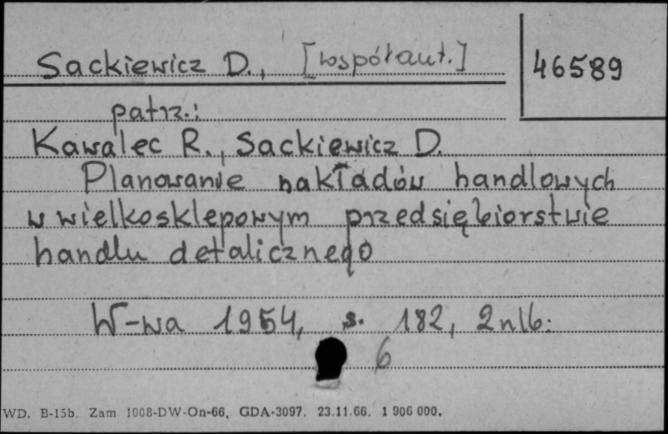 Sackiewicz D., [współaut.]
46589
patrz.:
Kawalec R., Sackiewicz D.
Planowanie nakładów handlowych
w wielkosklepowym przedsiębiorstwie
handlu detalicznego
W-wa 1954, s. 182, 2nlb.
6
WD. B-15b. Zam 1008-DW-On-66, GDA-3097. 23.11.66. 1 906 000.